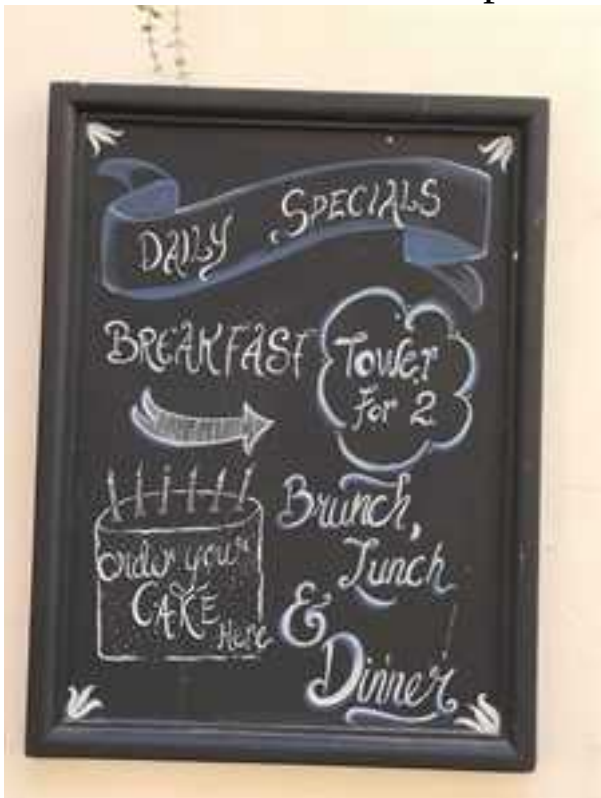 DAILY SPECIALS
BREAKFAST
Tower
For 2
Order your
CAKE
Here
Brunch,
Lunch
&
Dinner